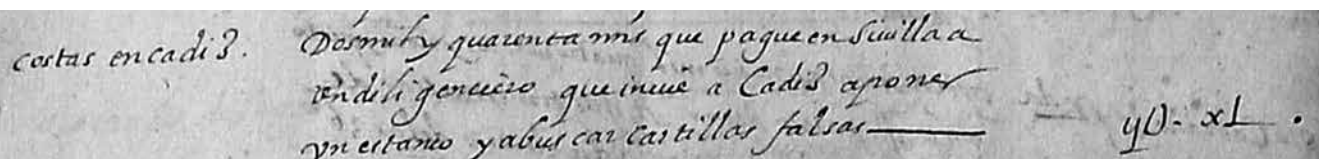 costas en cadiz.
Dosmil y quarenta mrs que pague en Siuilla a
un dili genciero que inuie a Cadiz aponer
yn estanco y abuscar cartillas falsas
ijU- xL .